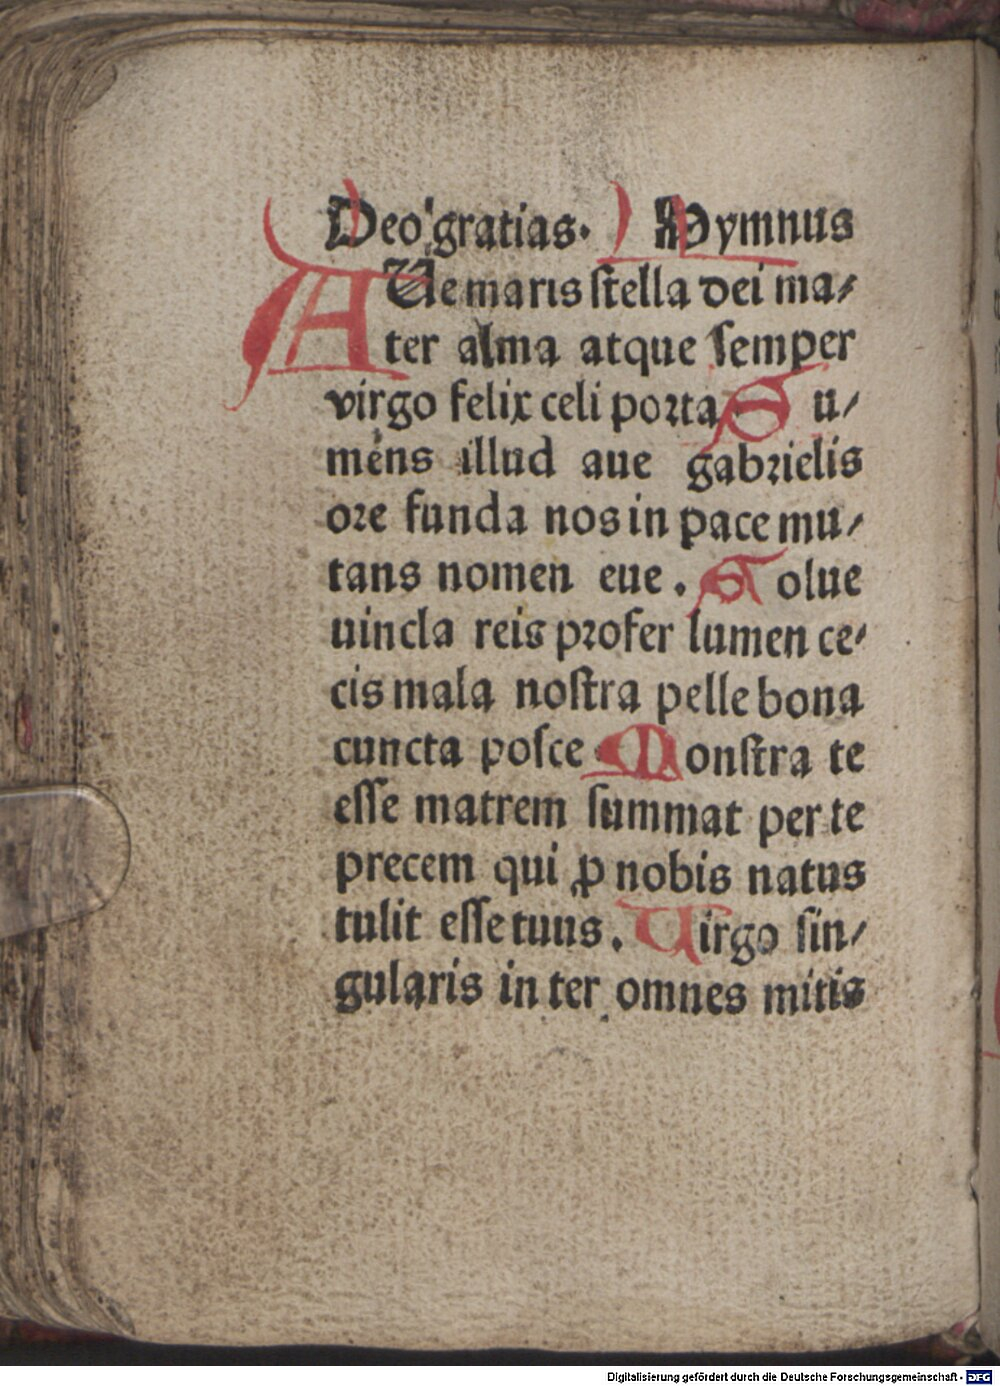 Deo gratias. Hymnus
AUe maris ſtella dei ma⸗
ter alma atque ſemper
virgo felix celi porta Su⸗
mens illud aue gabrielis
ore funda nos in pace mu⸗
tans nomen eue. Solue
uincla reis profer lumen ce⸗
cis mala noſtra pelle bona
cuncta poſce Monſtra te
eſſe matrem ſummat per te
precem qui ꝓ nobis natus
tulit eſſe tuus. Uirgo ſin⸗
gularis in ter omnes mitis
Digitalisierung gefördert durch die Deutsche Forschungsgemeinschaft - DFG